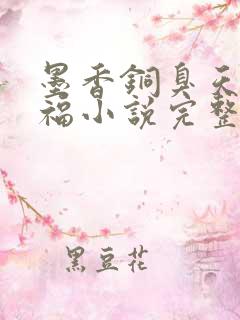 墨香銅臭天
福小說完整
黑豆花